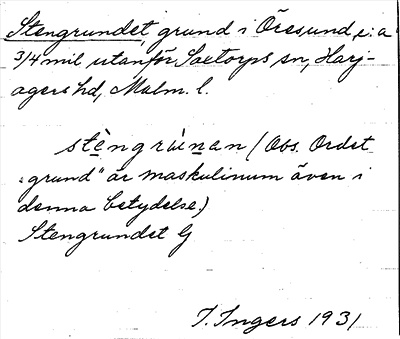 Stengrundet, grund i Öresund, c:a
3/4 mil utanför Saxtorps sn, Harj-
agers hd, Malm. l.
stèngrùnan (Obs. Ordet
"grund" är maskulinum även i
denna betydelse)
Stengrundet G
I. Ingers 1931